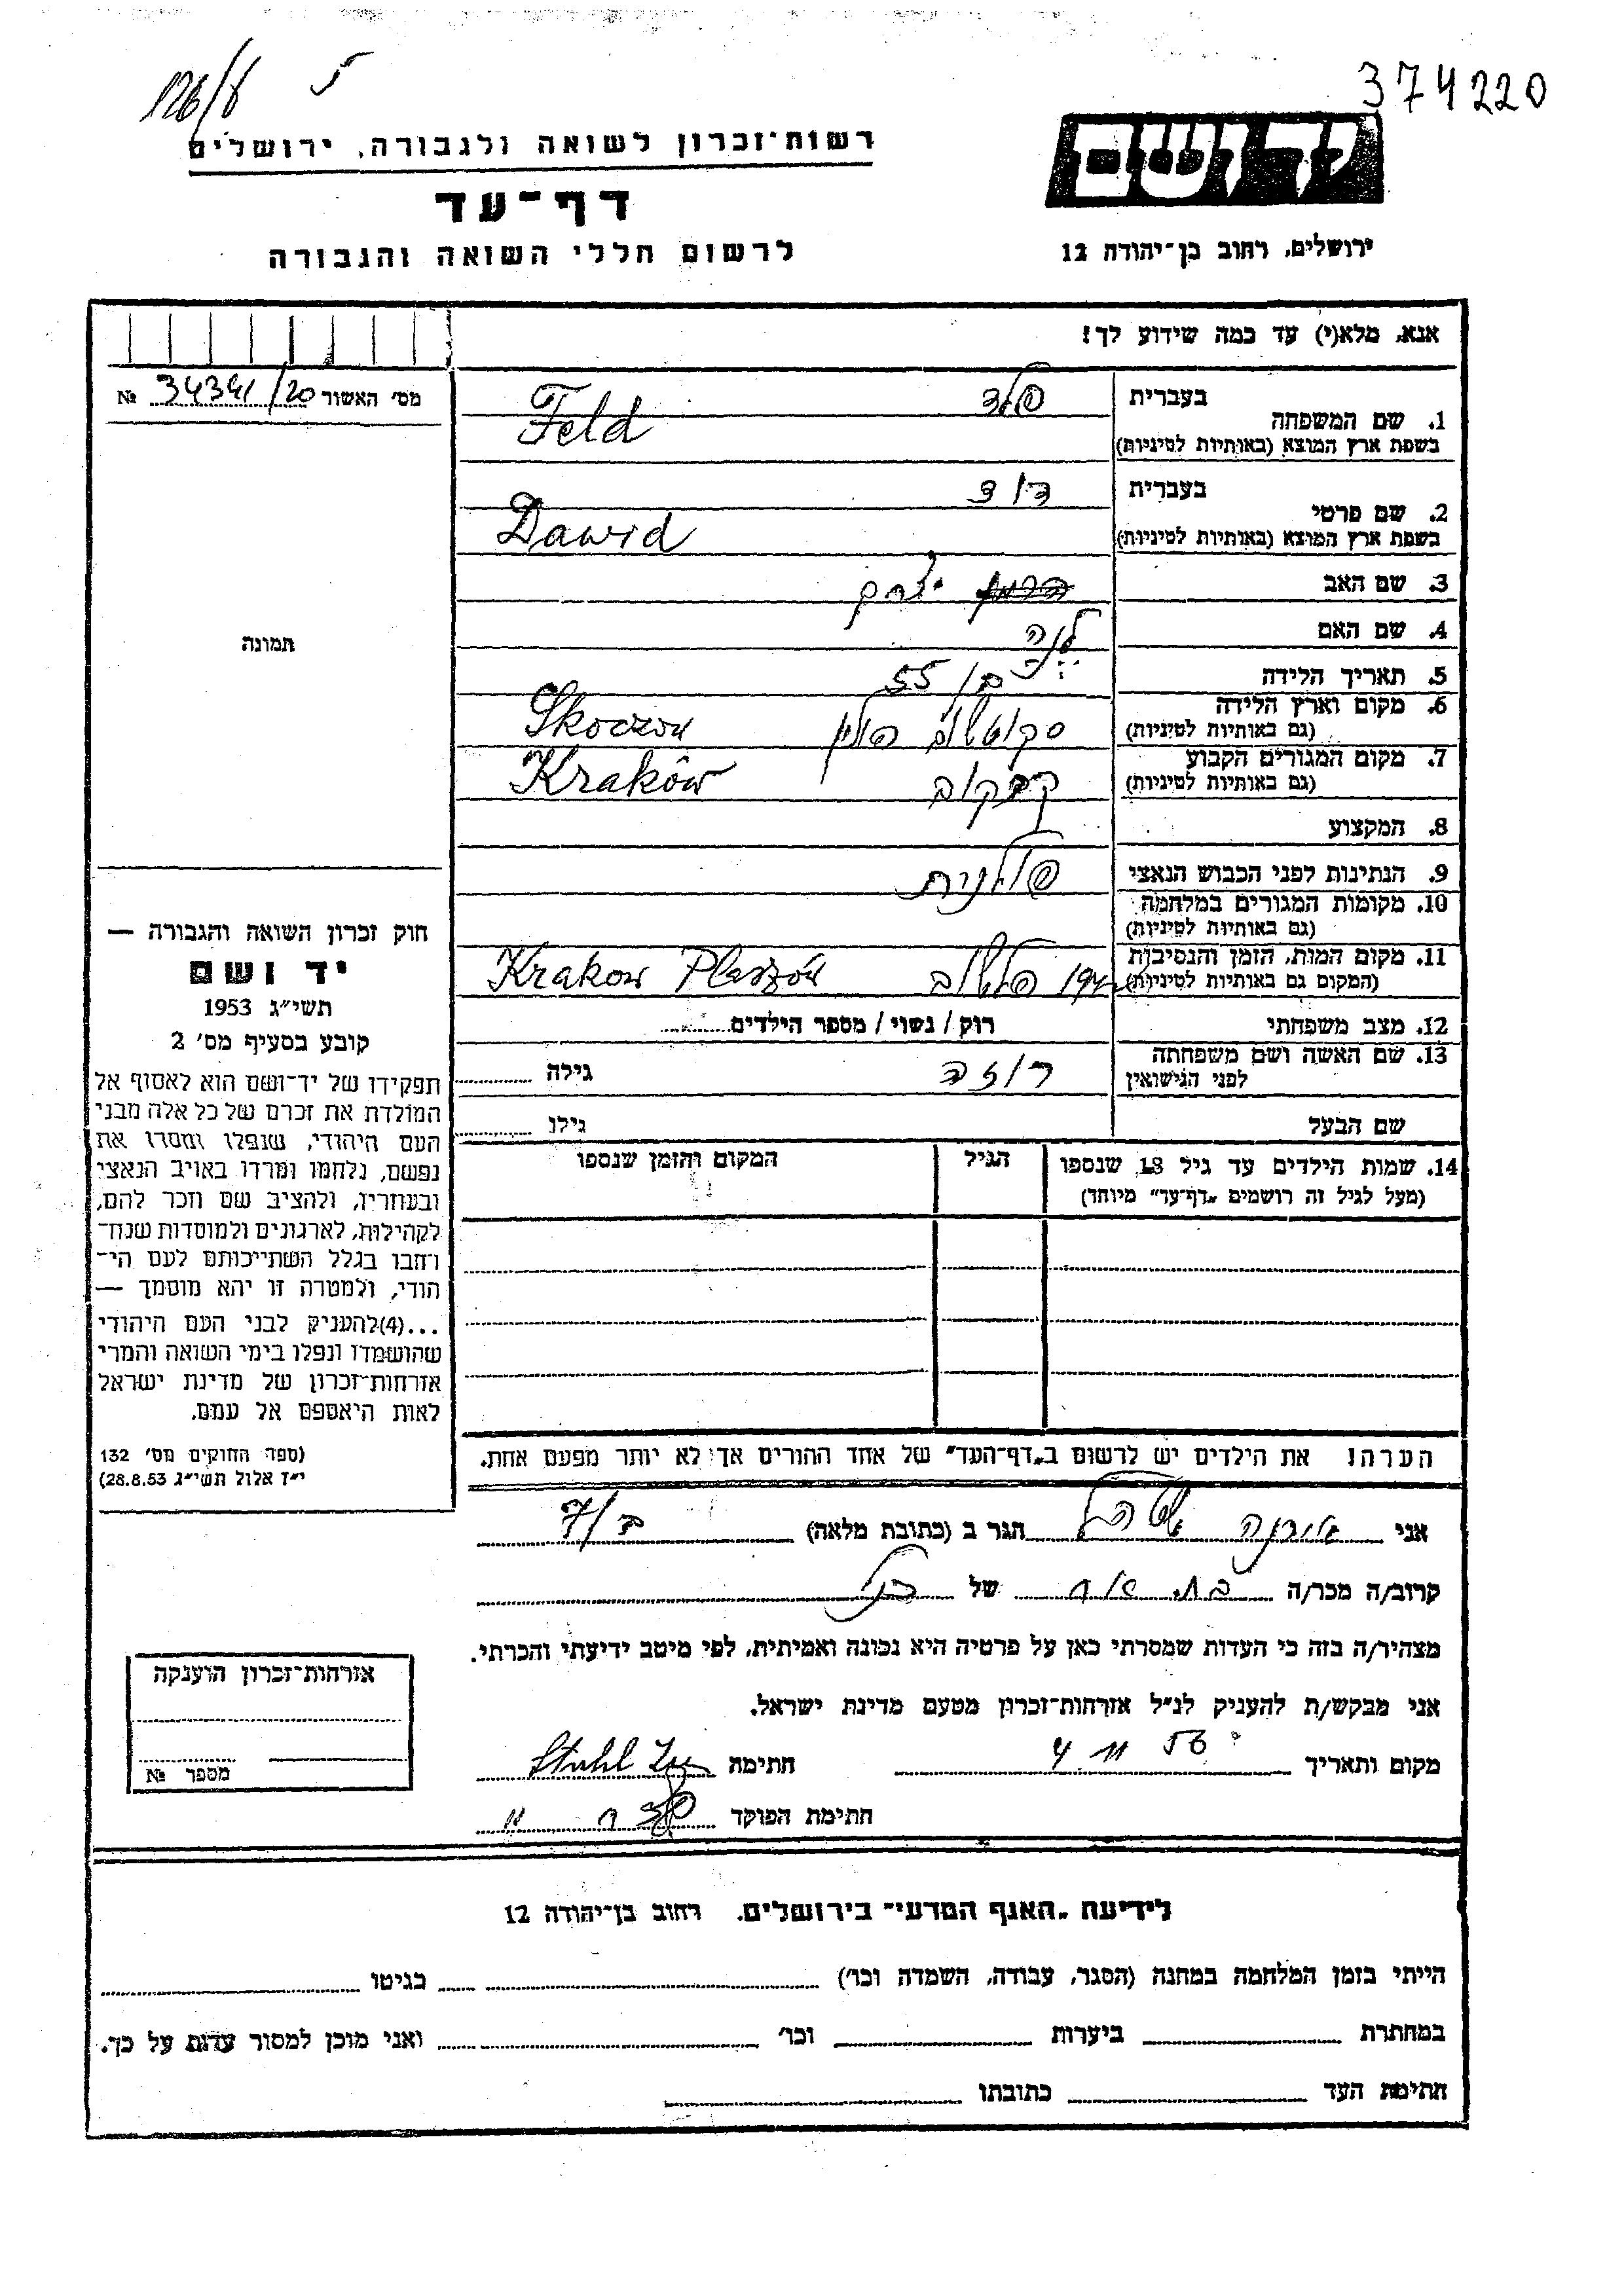 126/8 5
374220
יד ושם
רשות־זכרון לשואה ולגבורה, ירושלים
דף־עד
לרשום חללי השואה והגבורה
ירושלים, רחוב בן־יהודה 12
אנא, מלא(י) עד כמה שידוע לך!
מס׳ האשור № 34341/20
בעברית פלד
1. שם המשפחה
בשפת ארץ המוצא (באותיות לטיניות) Feld
בעברית דוד
2. שם פרטי
בשפת ארץ המוצא (באותיות לטיניות) Dawid
3. שם האב יצחק
4. שם האם לנה
5. תאריך הלידה 55
6. מקום וארץ הלידה
(גם באותיות לטיניות) סקוטשוב פולין Skoczow
7. מקום המגורים הקבוע
(גם באותיות לטיניות) קרקוב Kraków
8. המקצוע
9. הנתינות לפני הכבוש הנאצי פולנית
10. מקומות המגורים במלחמה
(גם באותיות לטיניות)
11. מקום המות, הזמן והנסיבות
(המקום גם באותיות לטיניות) פלשוב Krakow Plaszów
12. מצב משפחתי רוק / נשוי / מספר הילדים
13. שם האשה ושם משפחתה
לפני הנישואין רוזה גילה
שם הבעל גילו
14. שמות הילדים עד גיל 18 שנספו הגיל המקום והזמן שנספו
(מעל לגיל זה רושמים „דף־עד״ מיוחד)
הערה: את הילדים יש לרשום ב„דף־העד״ של אחד ההורים אך לא יותר מפעם אחת.
תמונה
חוק זכרון השואה והגבורה —
יד ושם
תשי״ג 1953
קובע בסעיף מס׳ 2
תפקידו של יד־ושם הוא לאסוף אל
המולדת את זכרם של כל אלה מבני
העם היהודי, שנפלו ומסרו את
נפשם, נלחמו ומרדו באויב הנאצי
ובעוזריו, ולהציב שם וזכר להם,
לקהילות, לארגונים ולמוסדות שנח־
רבו בגלל השתייכותם לעם הי־
הודי, ולמטרה זו יהא מוסמך —
...(4)להעניק לבני העם היהודי
שהושמדו ונפלו בימי השואה והמרי
אזרחות־זכרון של מדינת ישראל
לאות היאספם אל עמם.
(ספר החוקים מס׳ 132
י״ז אלול תשי״ג 28.8.53)
אני הגר ב (כתובת מלאה)
קרוב/ה מכר/ה של
מצהיר/ה בזה כי העדות שמסרתי כאן על פרטיה היא נכונה ואמיתית, לפי מיטב ידיעתי והכרתי.
אני מבקש/ת להעניק לנ״ל אזרחות־זכרון מטעם מדינת ישראל.
מקום ותאריך 4 11 56 חתימה Stuhl
חתימת הפוקד
אזרחות־זכרון הוענקה
מספר №
לידיעת „האגף המדעי״ בירושלים, רחוב בן־יהודה 12
הייתי בזמן המלחמה במחנה (הסגר, עבודה, השמדה וכו׳) בגיטו
במחתרת ביערות וכו׳ ואני מוכן למסור עדות על כך.
חתימת העד כתובתו